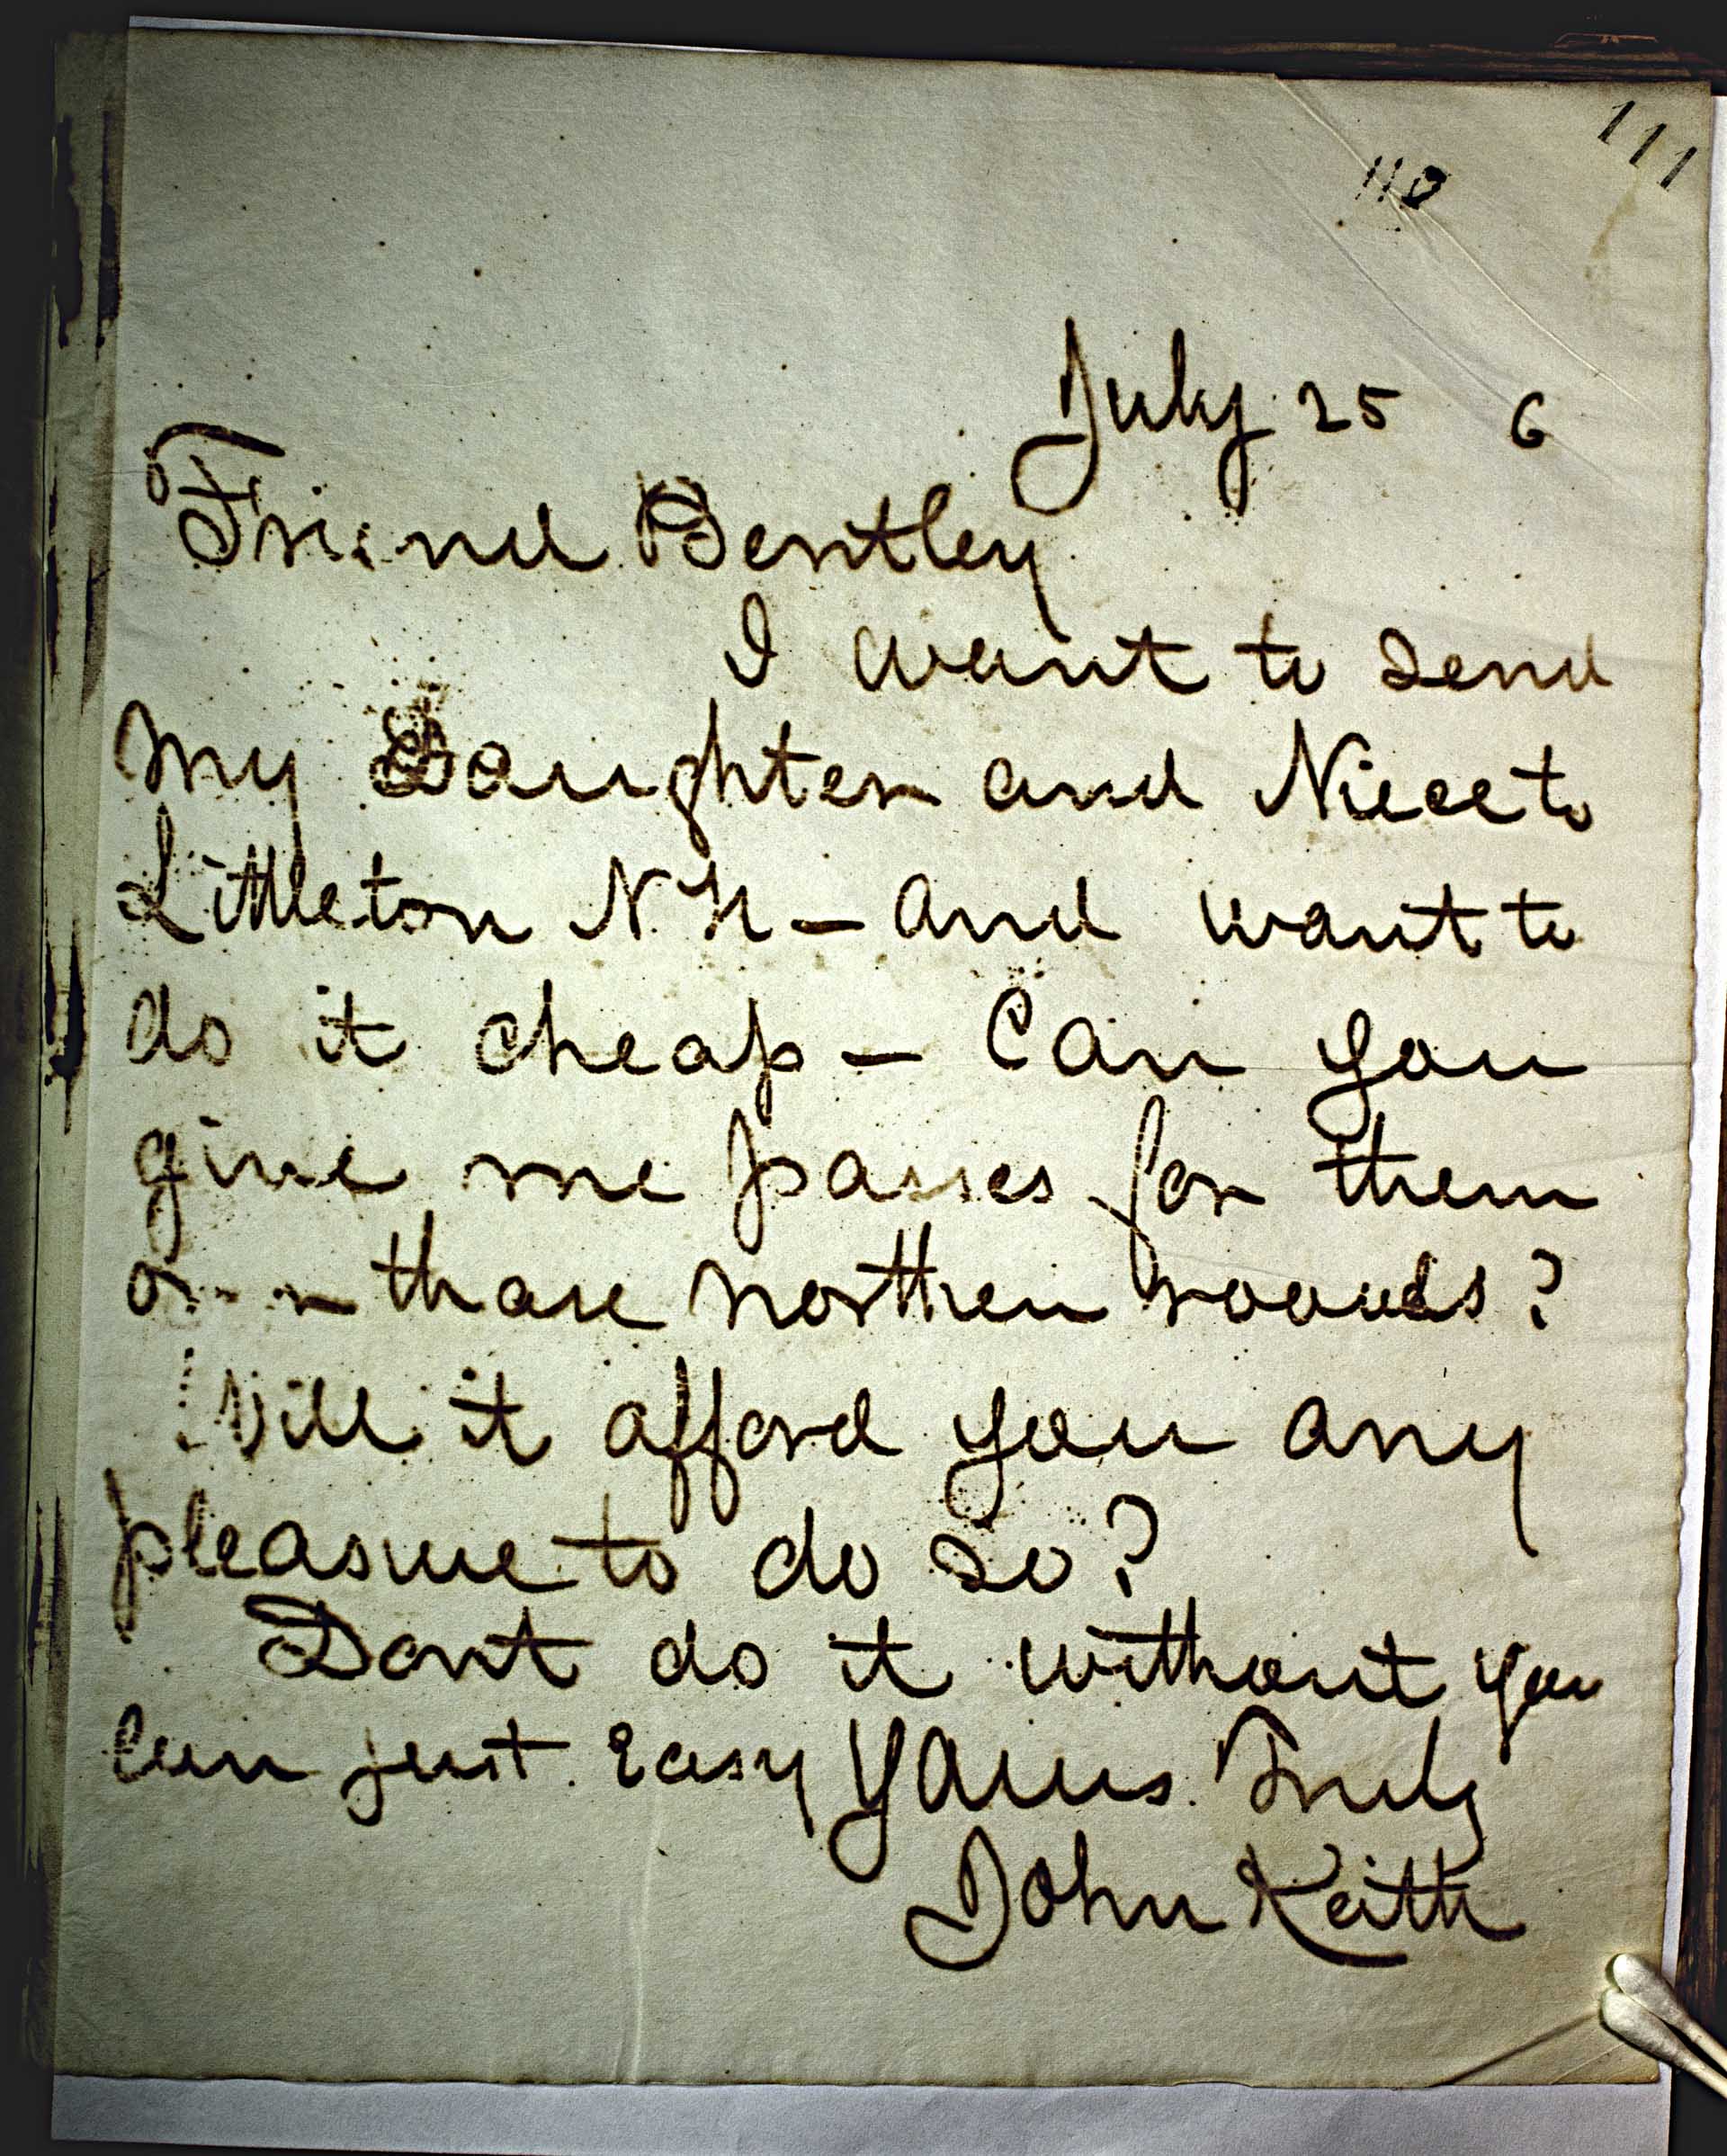 111
110
July 25 6
Friend Bentley
I want to send
my Daughter and Niece to
Littleton N.H – and want to
do it cheap – Can you
give me passes for them
over those northern roads?
Will it afford you any
pleasure to do so?
Dont do it without you
can just easy Yours Truly
John Keith